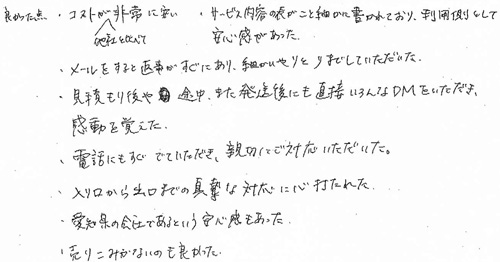 良かった点 ・コストが非常に安い ・サービス内容の表がこと細かに書かれており、利用側として
他社と比べて 安心感があった。
・メールをすると返事がすぐにあり、細かいやりとりまでしていただいた。
・見積もり後や 途中、また発送後にも直接いろんなDMをいただき、
感動を覚えた。
・電話にもすぐ でていただき、親切にご対応いただいた。
・入り口から出口までの真摯な対応に心打たれた。
・愛知県の会社であるという安心感もあった。
・売りこみがないのも良かった。